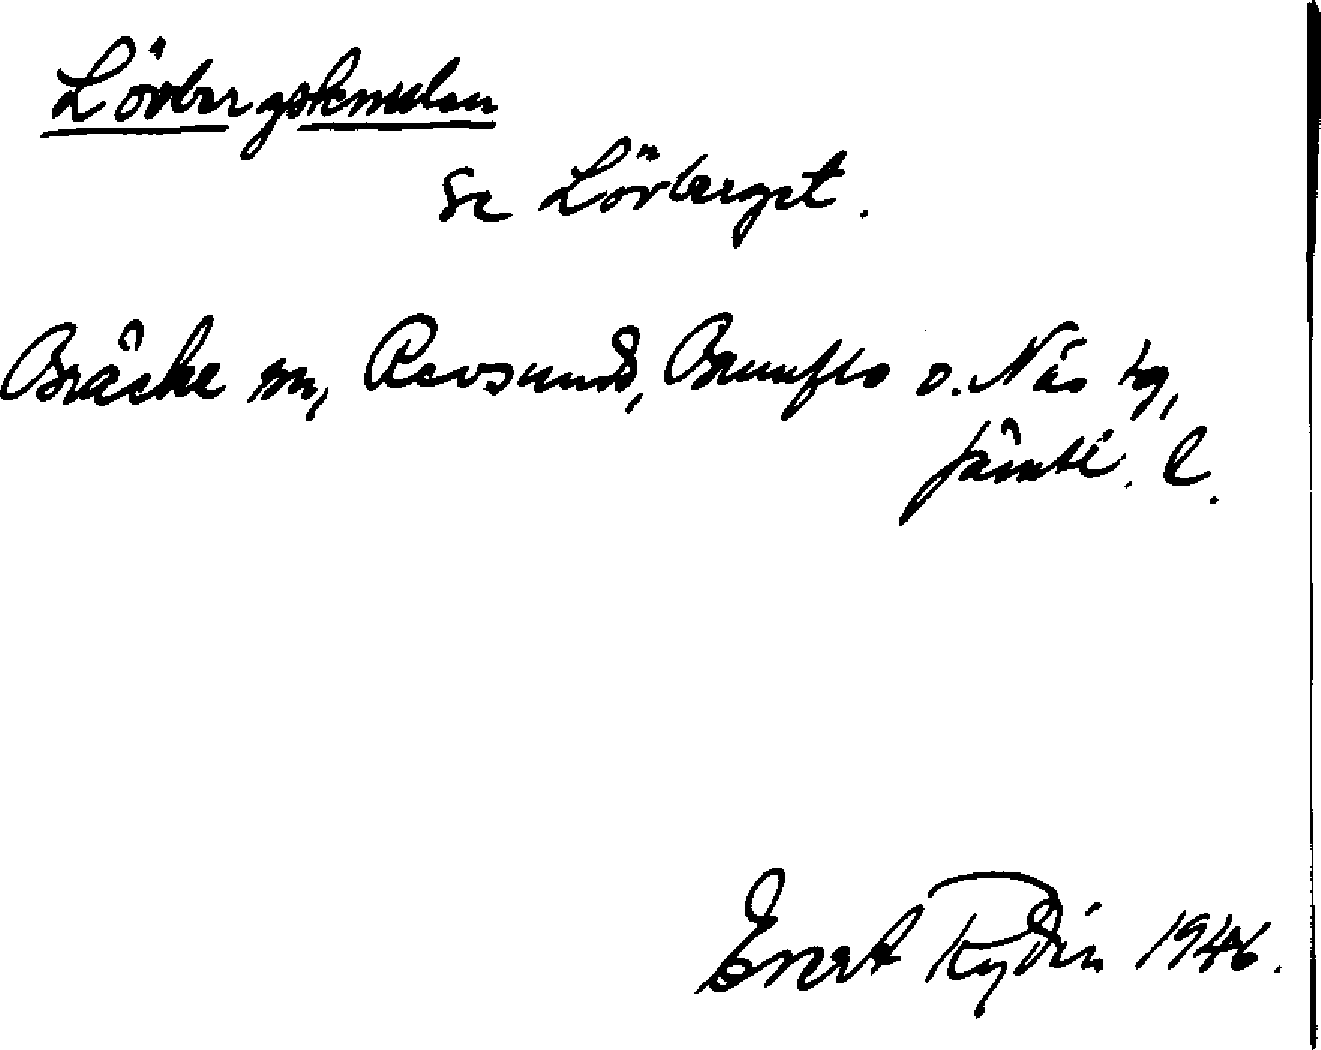 Lövbergsknulen
Se Lövberget.
Bräcke sn, Revsund, Brunflo o. Näs tg,
Jämtl. l.
Evert Rydin 1946.